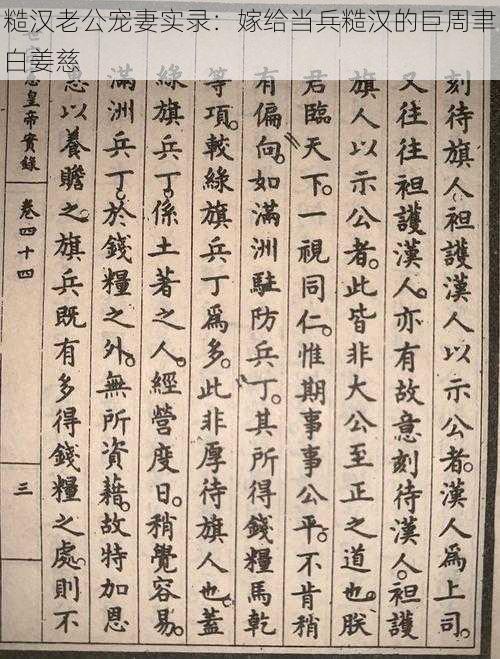 糙汉老公宠妻实录：嫁给当兵糙汉的巨周聿
白姜慈
刻待旗人袒護漢人以示公者。漢人爲上司。
又往往袒護漢人。亦有故意刻待漢人。袒護
旗人以示公者。此皆非大公至正之道也。朕
君臨天下。一視同仁。惟期事事公平。不肯稍
有偏向。如滿洲駐防兵丁。其所得錢糧馬乾
等項。較綠旗兵丁爲多。此非厚待旗人也。蓋
綠旗兵丁。係土著之人。經營度日。稍覺容易。
滿洲兵丁。於錢糧之外。無所資藉。故特加恩
惠以養贍之。旗兵既有多得錢糧之處。則不
皇帝實錄
卷四十四
三